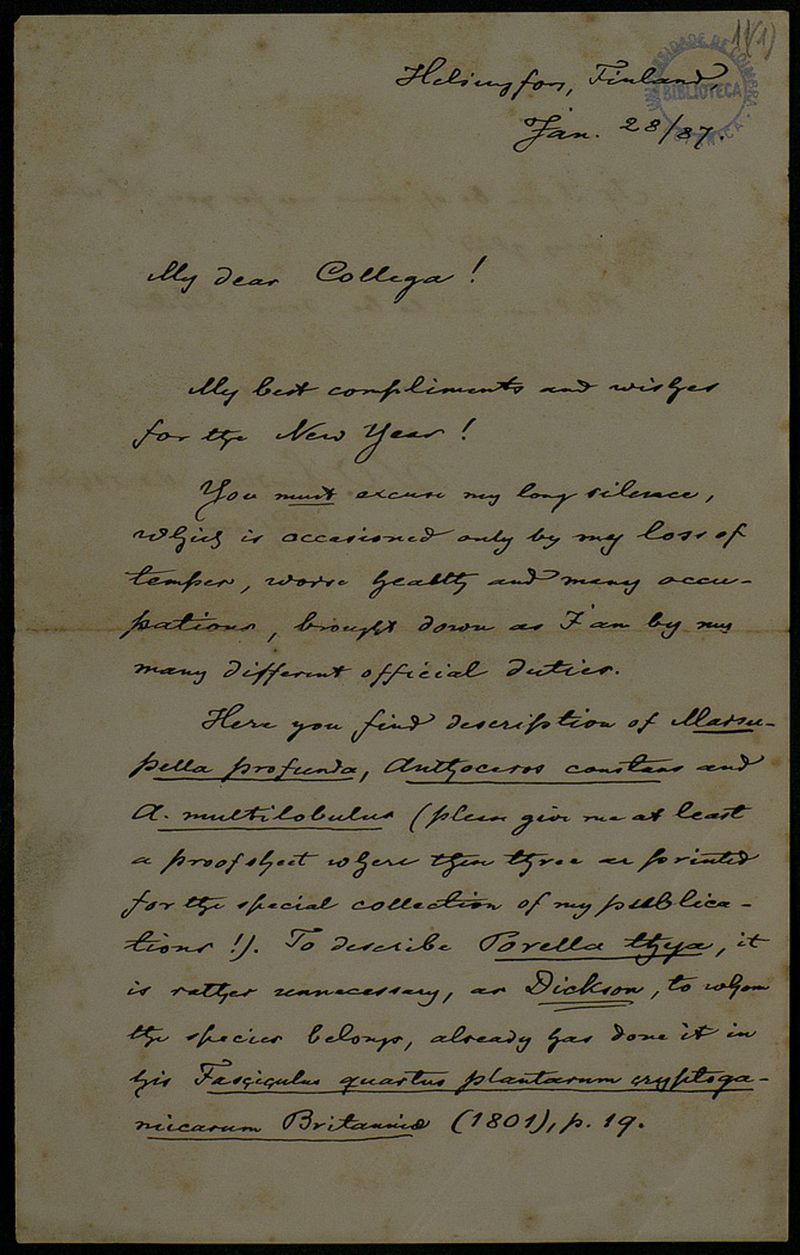 11(1)
UNIVERSIDADE DE COIMBRA
BIBLIOTECA
Helsingfors, Finland,
Jan. 28/87.
My dear Collega!
My best compliments and wishes
for the New Year!
You must excuse my long silence,
which is occasioned only by my loss of
temper, worse health and many occu-
pations, brought down as I am by my
many different official duties.
Here you find description of Marsu-
pella profunda, Anthoceros constans and
A. multilobulus (please give me at least
a proofsheet where these three are printed
for the special collection of my publica-
tions!). To describe Porella thuja, it
is rather unnecessary, as Dickson, to whom
the species belongs, already has done it in
his Fasciculus quartus plantarum cryptoga-
micarum Britanniæ (1801), p. 19.